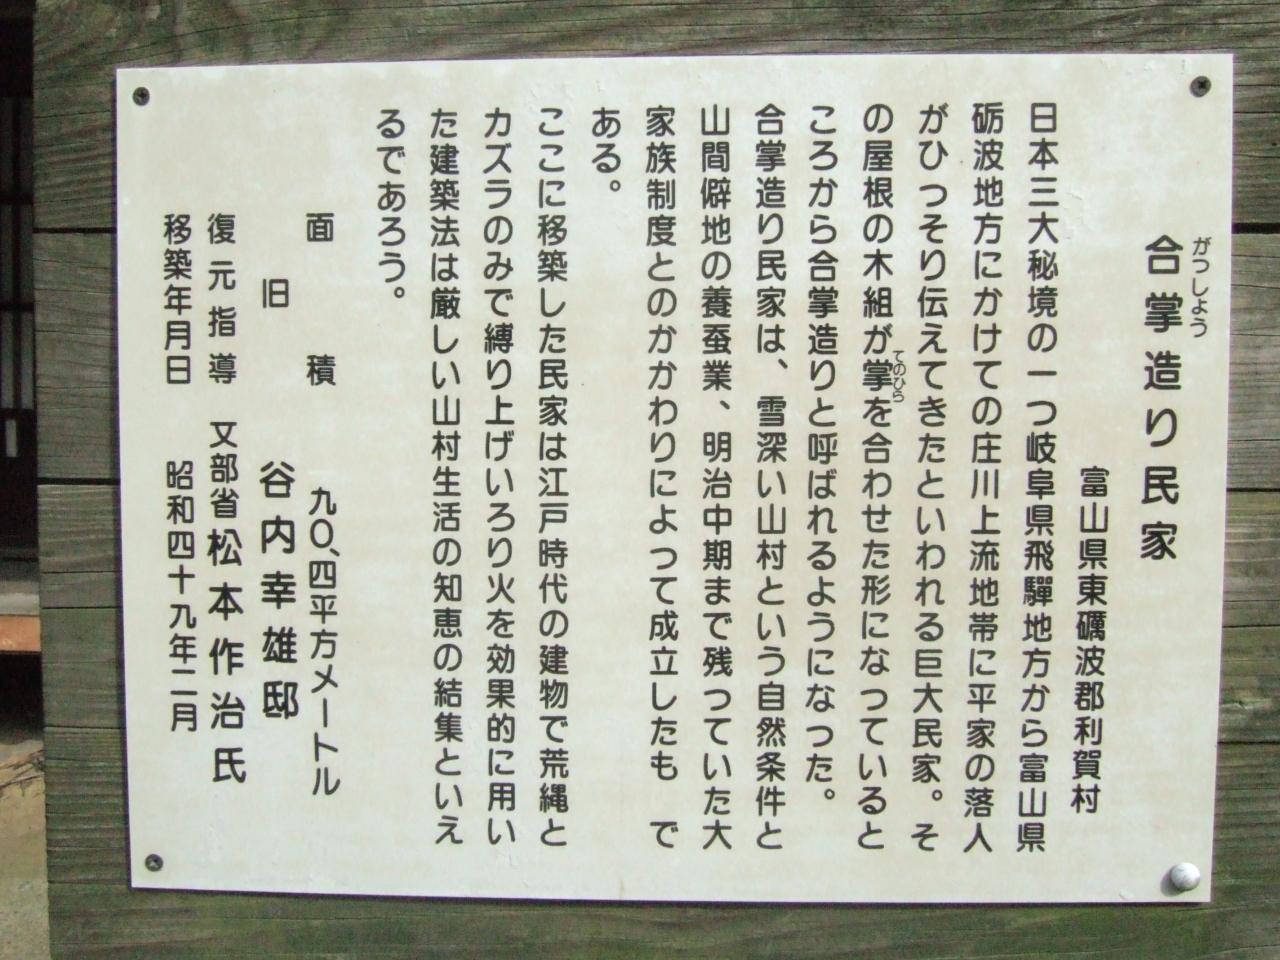 がっしよう
合掌造り民家
富山県東礪波郡利賀村
日本三大秘境の一つ岐阜県飛驒地方から富山県
砺波地方にかけての庄川上流地帯に平家の落人
がひっそり伝えてきたといわれる巨大民家。そ
の屋根の木組が掌を合わせた形になっていると
てのひら
ころから合掌造りと呼ばれるようになった。
合掌造り民家は、雪深い山村という自然条件と
山間僻地の養蚕業、明治中期まで残っていた大
家族制度とのかかわりによって成立したも　で
ある。
ここに移築した民家は江戸時代の建物で荒縄と
カズラのみで縛り上げいろり火を効果的に用い
た建築法は厳しい山村生活の知恵の結集といえ
るであろう。
面積　九〇、四平方メートル
旧　谷内幸雄邸
復元指導　又部省松本作治氏
移築年月日　昭和四十九年二月